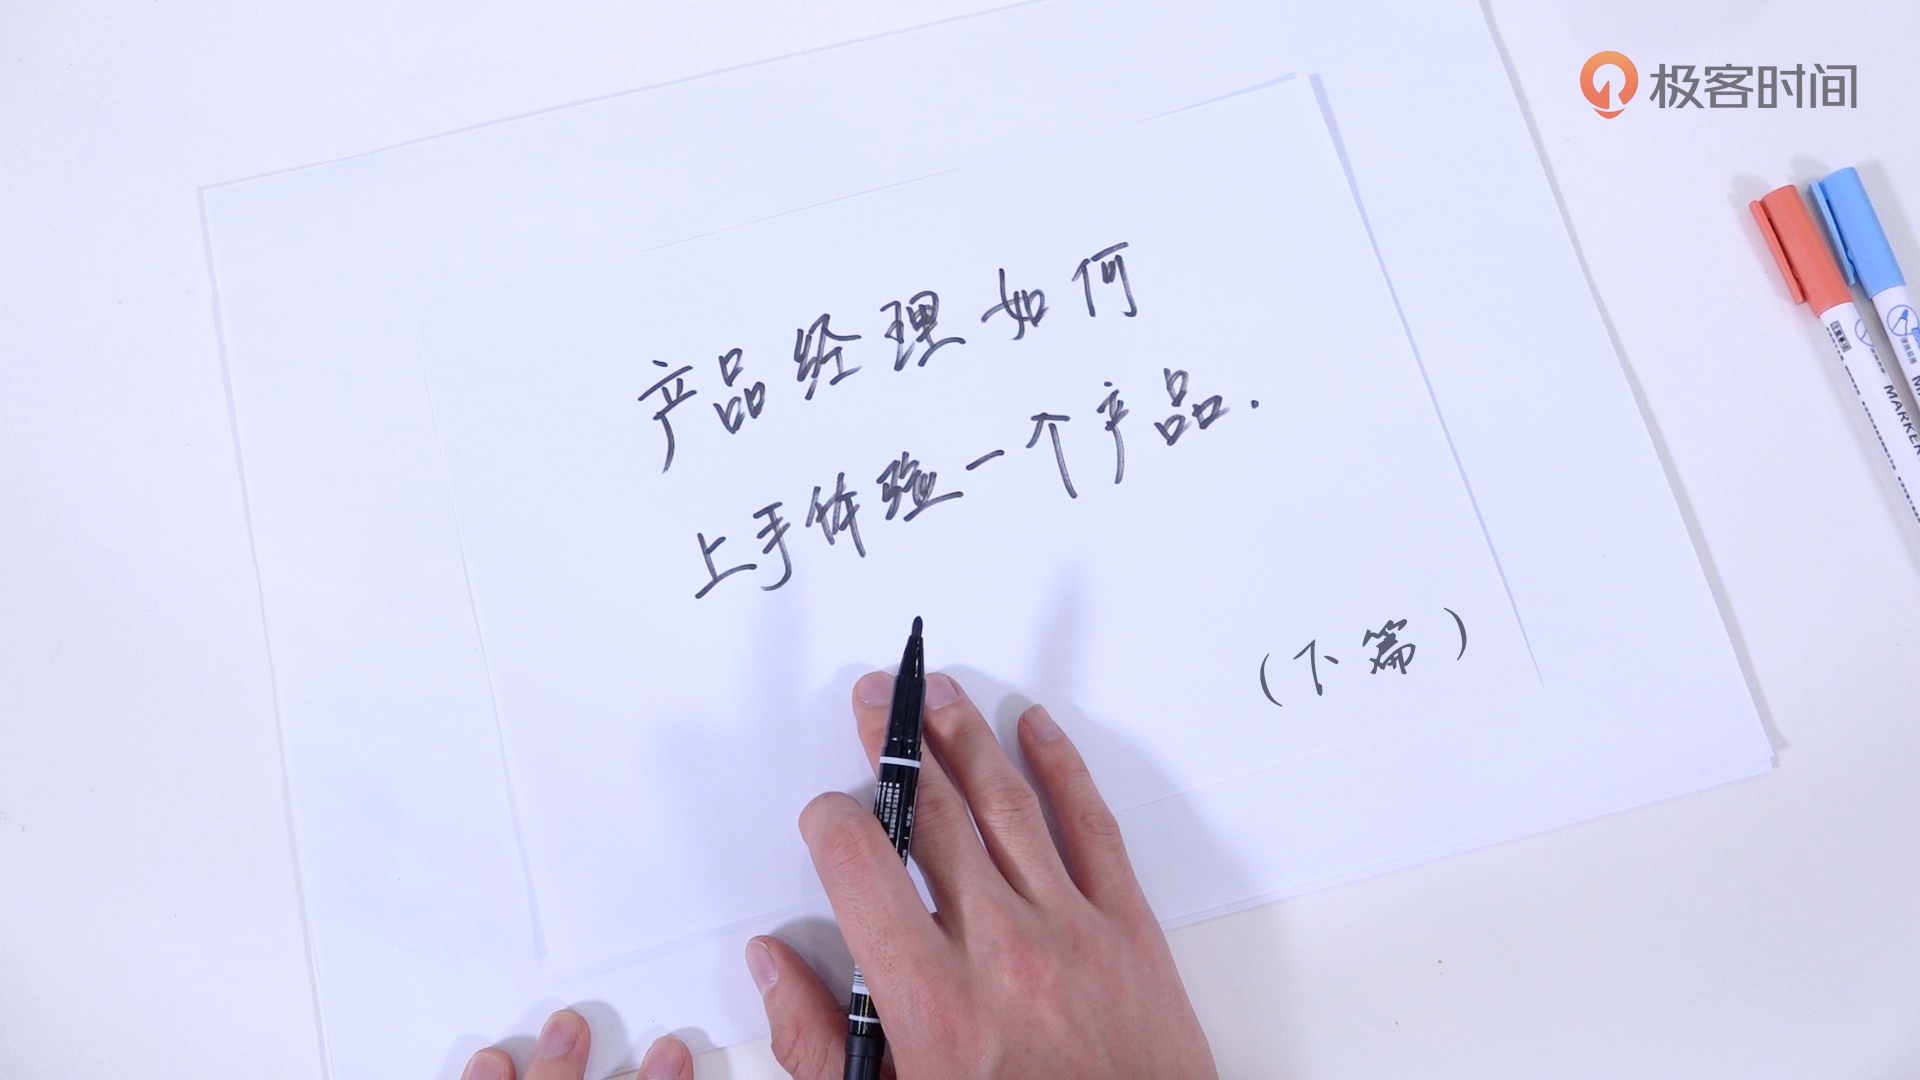 极客时间
产品经理如何
上手体验一个产品.
(下篇)
MARKER